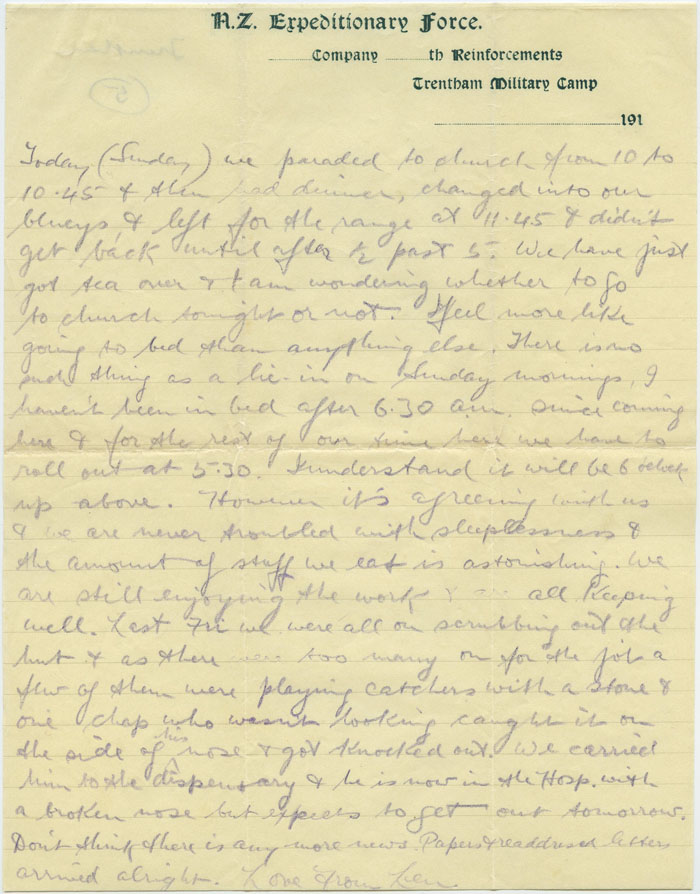 N.Z. Expeditionary Force.
Company th Reinforcements
Trentham Military Camp
191
(5)
Today (Sunday) we paraded to church from 10 to
10.45 & then had dinner, changed into our
blueys & left for the range at 11.45 & didn't
get back until after ½ past 5. We have just
got tea over & I am wondering whether to go
to church tonight or not. I feel more like
going to bed than anything else. There is no
such thing as a lie-in on Sunday mornings, I
haven't been in bed after 6.30 a.m. since coming
here & for the rest of our time here we have to
roll out at 5.30. I understand it will be 6 oclock
up above. However it's agreeing with us
& we are never troubled with sleeplessness &
the amount of stuff we eat is astonishing. We
are still enjoying the work & are all keeping
well. Last Fri we were all on scrubbing out the
hut & as there were too many on for the job a
few of them were playing catchers with a stone &
one chap who wasn't looking caught it on
the side of his nose & got knocked out. We carried
him to the dispensary & he is now in the Hosp. with
a broken nose but expects to get out tomorrow.
Don't think there is any more news. Papers & readdressed letters
arrived alright. Love from Len